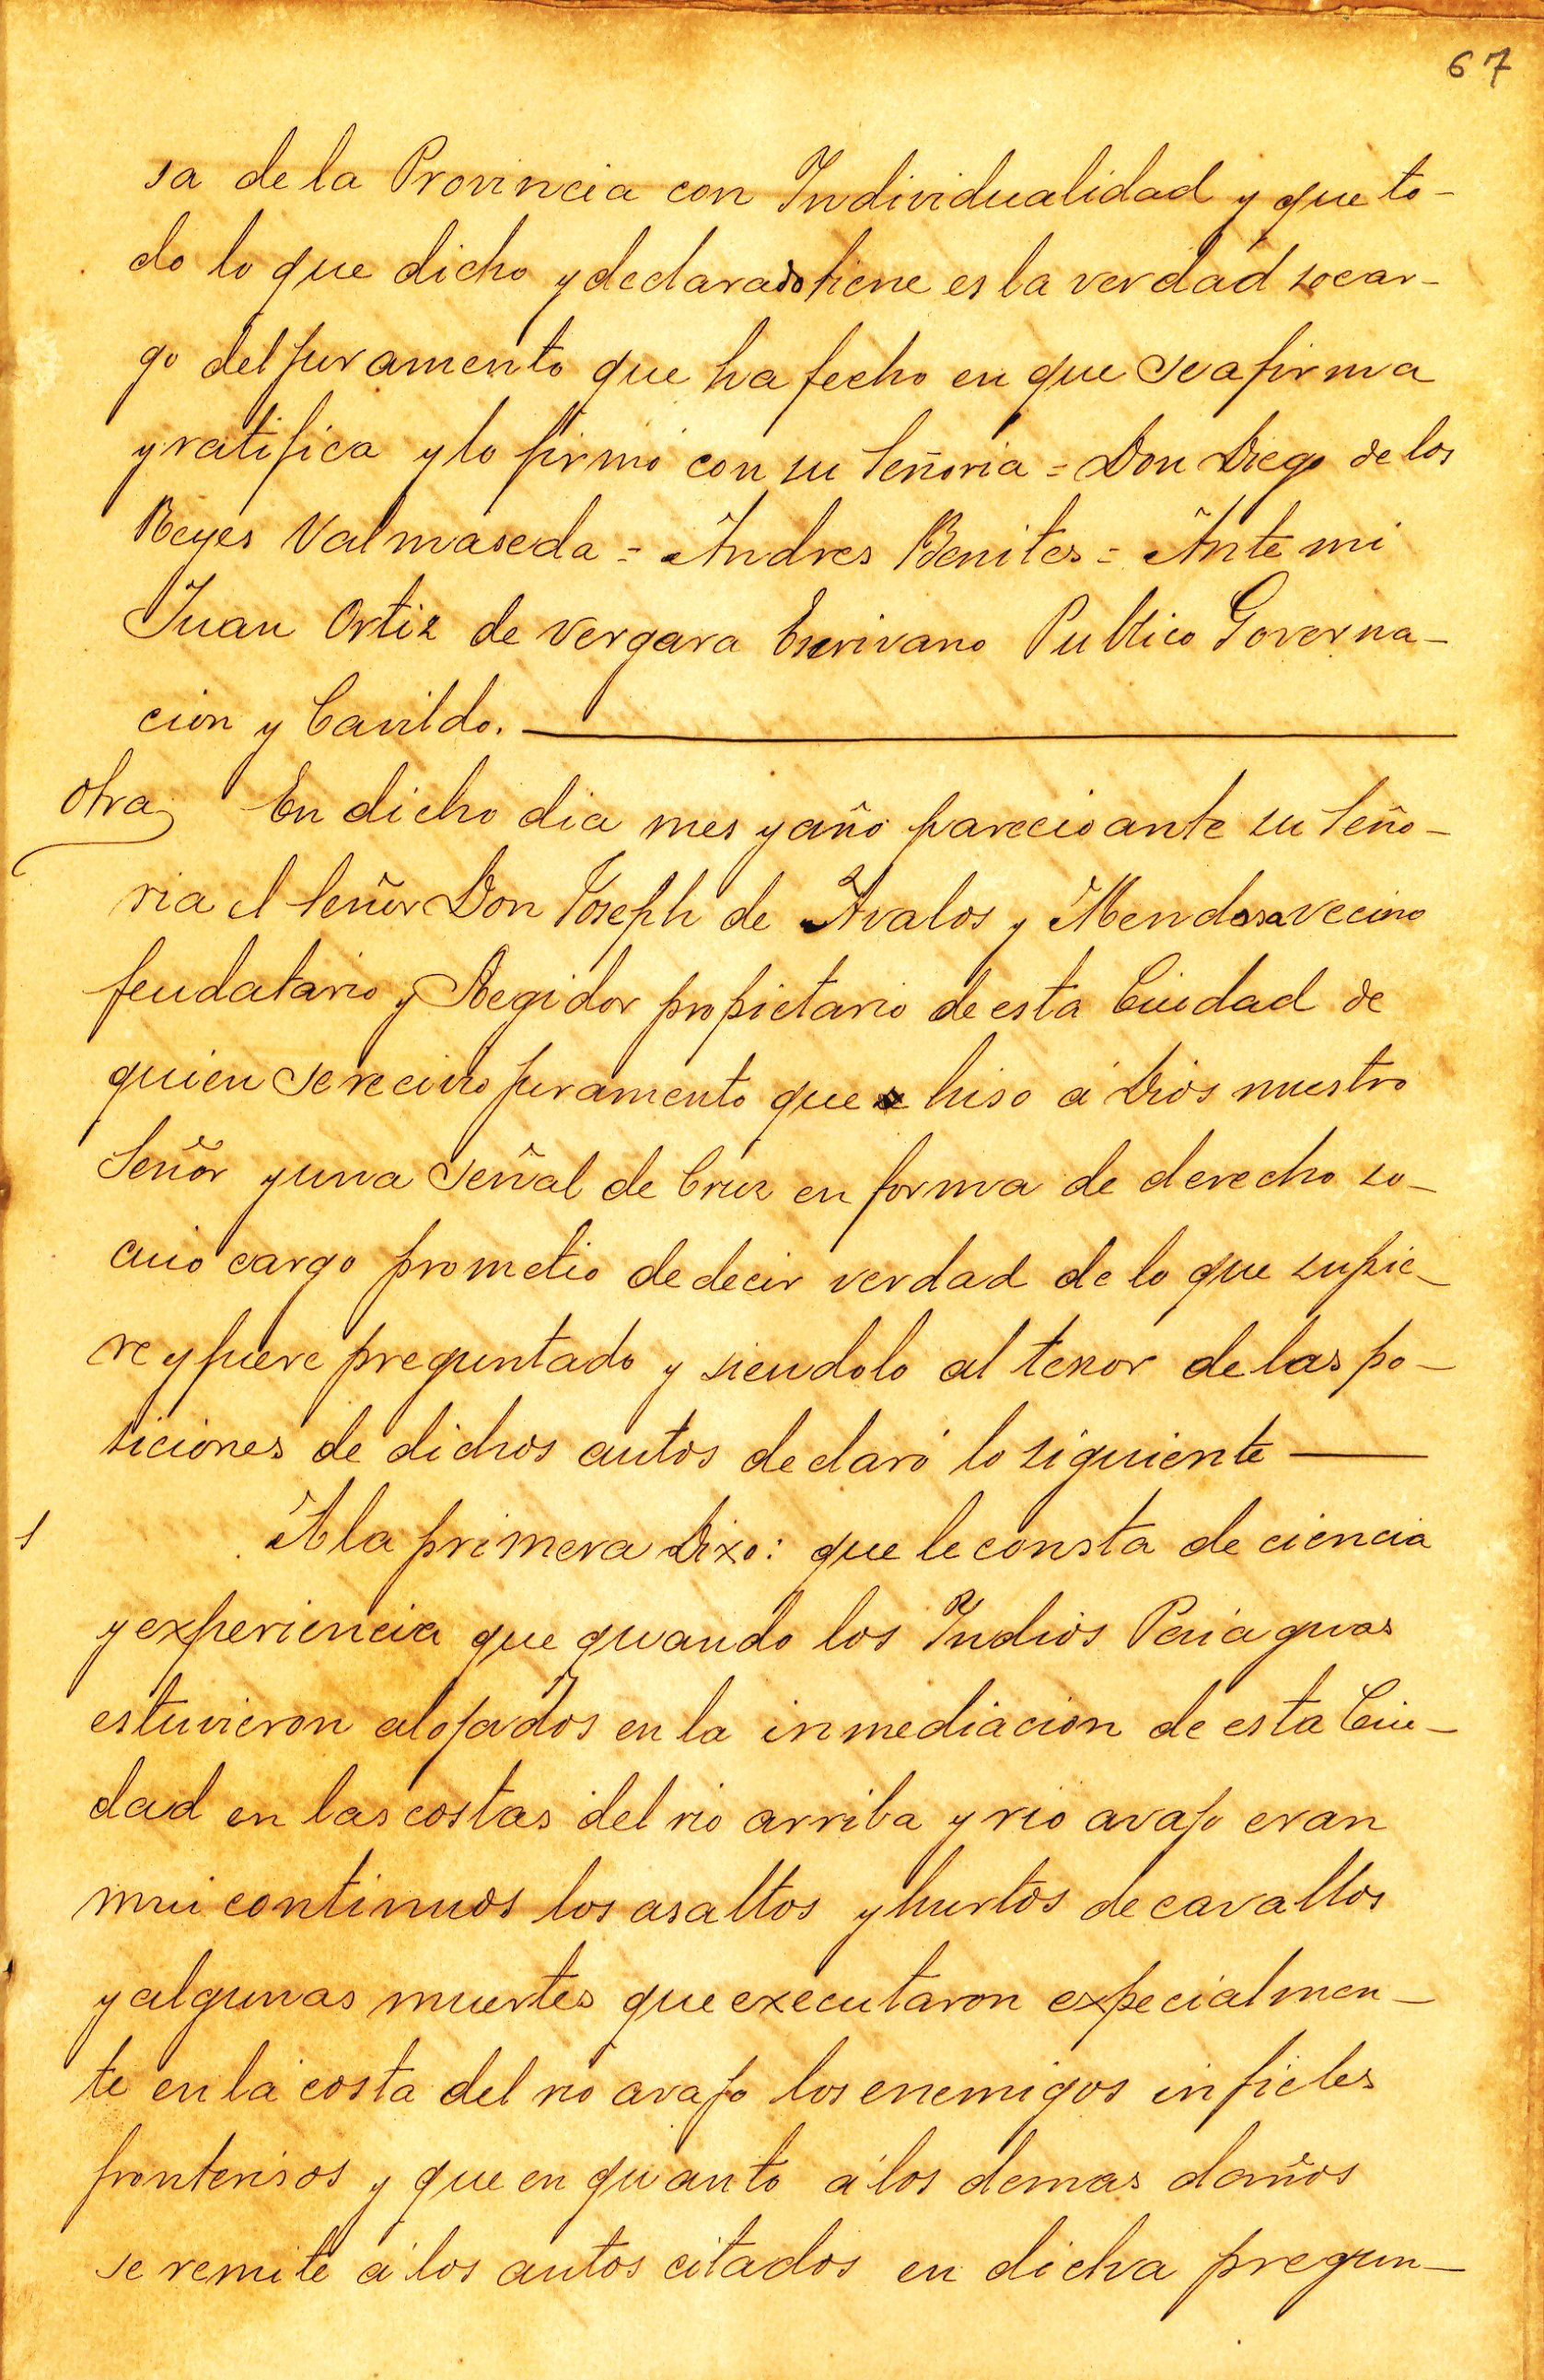 67
sa de la Provincia con Individualidad y que to-
do lo que dicho y declarado tiene es la verdad socar-
go del juramento que ha fecho en que se afirma
y ratifica y lo firmó con su Señoria = Don Diego de los
Reyes Valmaseda = Andres Benites = Ante mi
Juan Ortiz de Vergara Escrivano Publico Governa-
cion y Cavildo.
Otra En dicho dia mes y año parecio ante su Seño-
ria el Señor Don Joseph de Avalos y Mendosa vecino
feudatario y Regidor propietario de esta Ciudad de
quien se recivio juramento que hiso á Dios nuestro
Señor y una Señal de Cruz en forma de derecho so-
cuio cargo prometio de decir verdad de lo que supie-
re y fuere preguntado y siendolo al tenor de las po-
siciones de dichos autos declaró lo siguiente
1 A la primera Dixo: que le consta de ciencia
y experiencia que quando los Indios Paiaguas
estuvieron alojados en la inmediacion de esta Ciu-
dad en las costas del rio arriba y rio avajo eran
mui continuos los asaltos y hurtos de cavallos
y algunas muertes que executaron expecialmen-
te en la costa del rio avajo los enemigos infieles
fronterisos y que en quanto á los demas daños
se remite á los autos citados en dicha pregun-